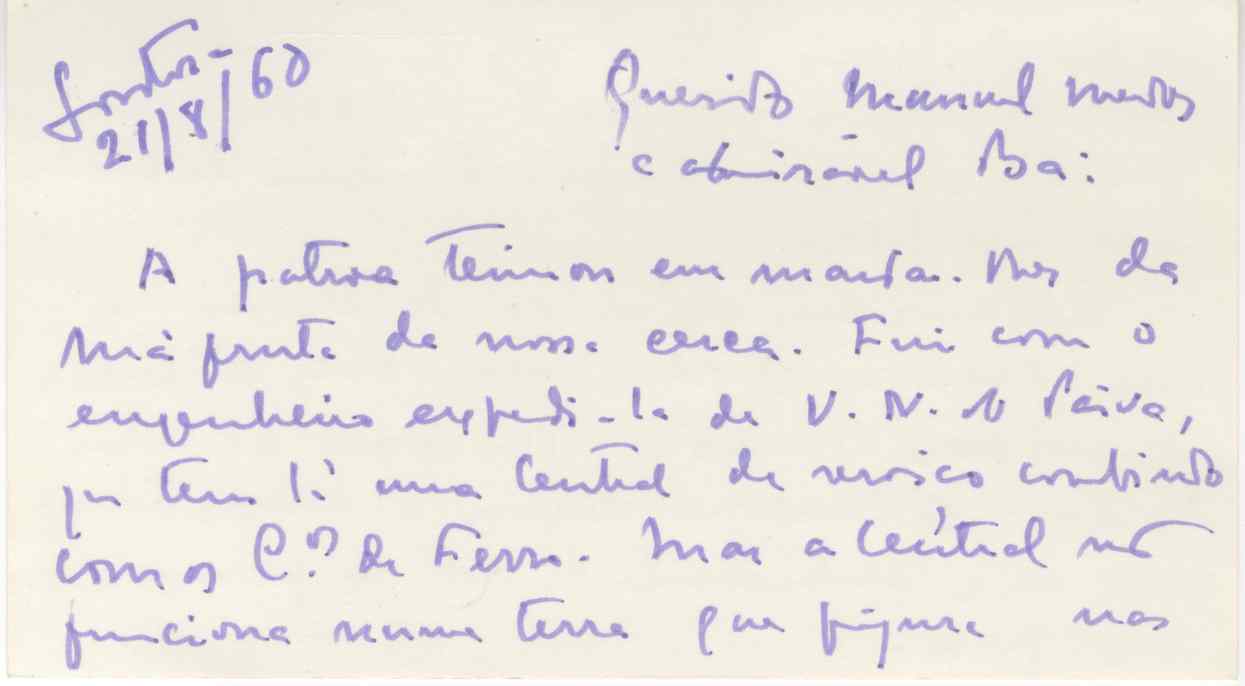 21/8/60
Querido Manuel Mendes
e admirável Ba:
A patroa teimou em mandar-lhes da
má fruta da nossa cerca. Fui com o
engenheiro expedi-la de V. N. de Paiva,
que tem lá uma Central de serviço combinado
com os C.ºs de Ferro. Mas a Central não
funciona numa terra que figura nos